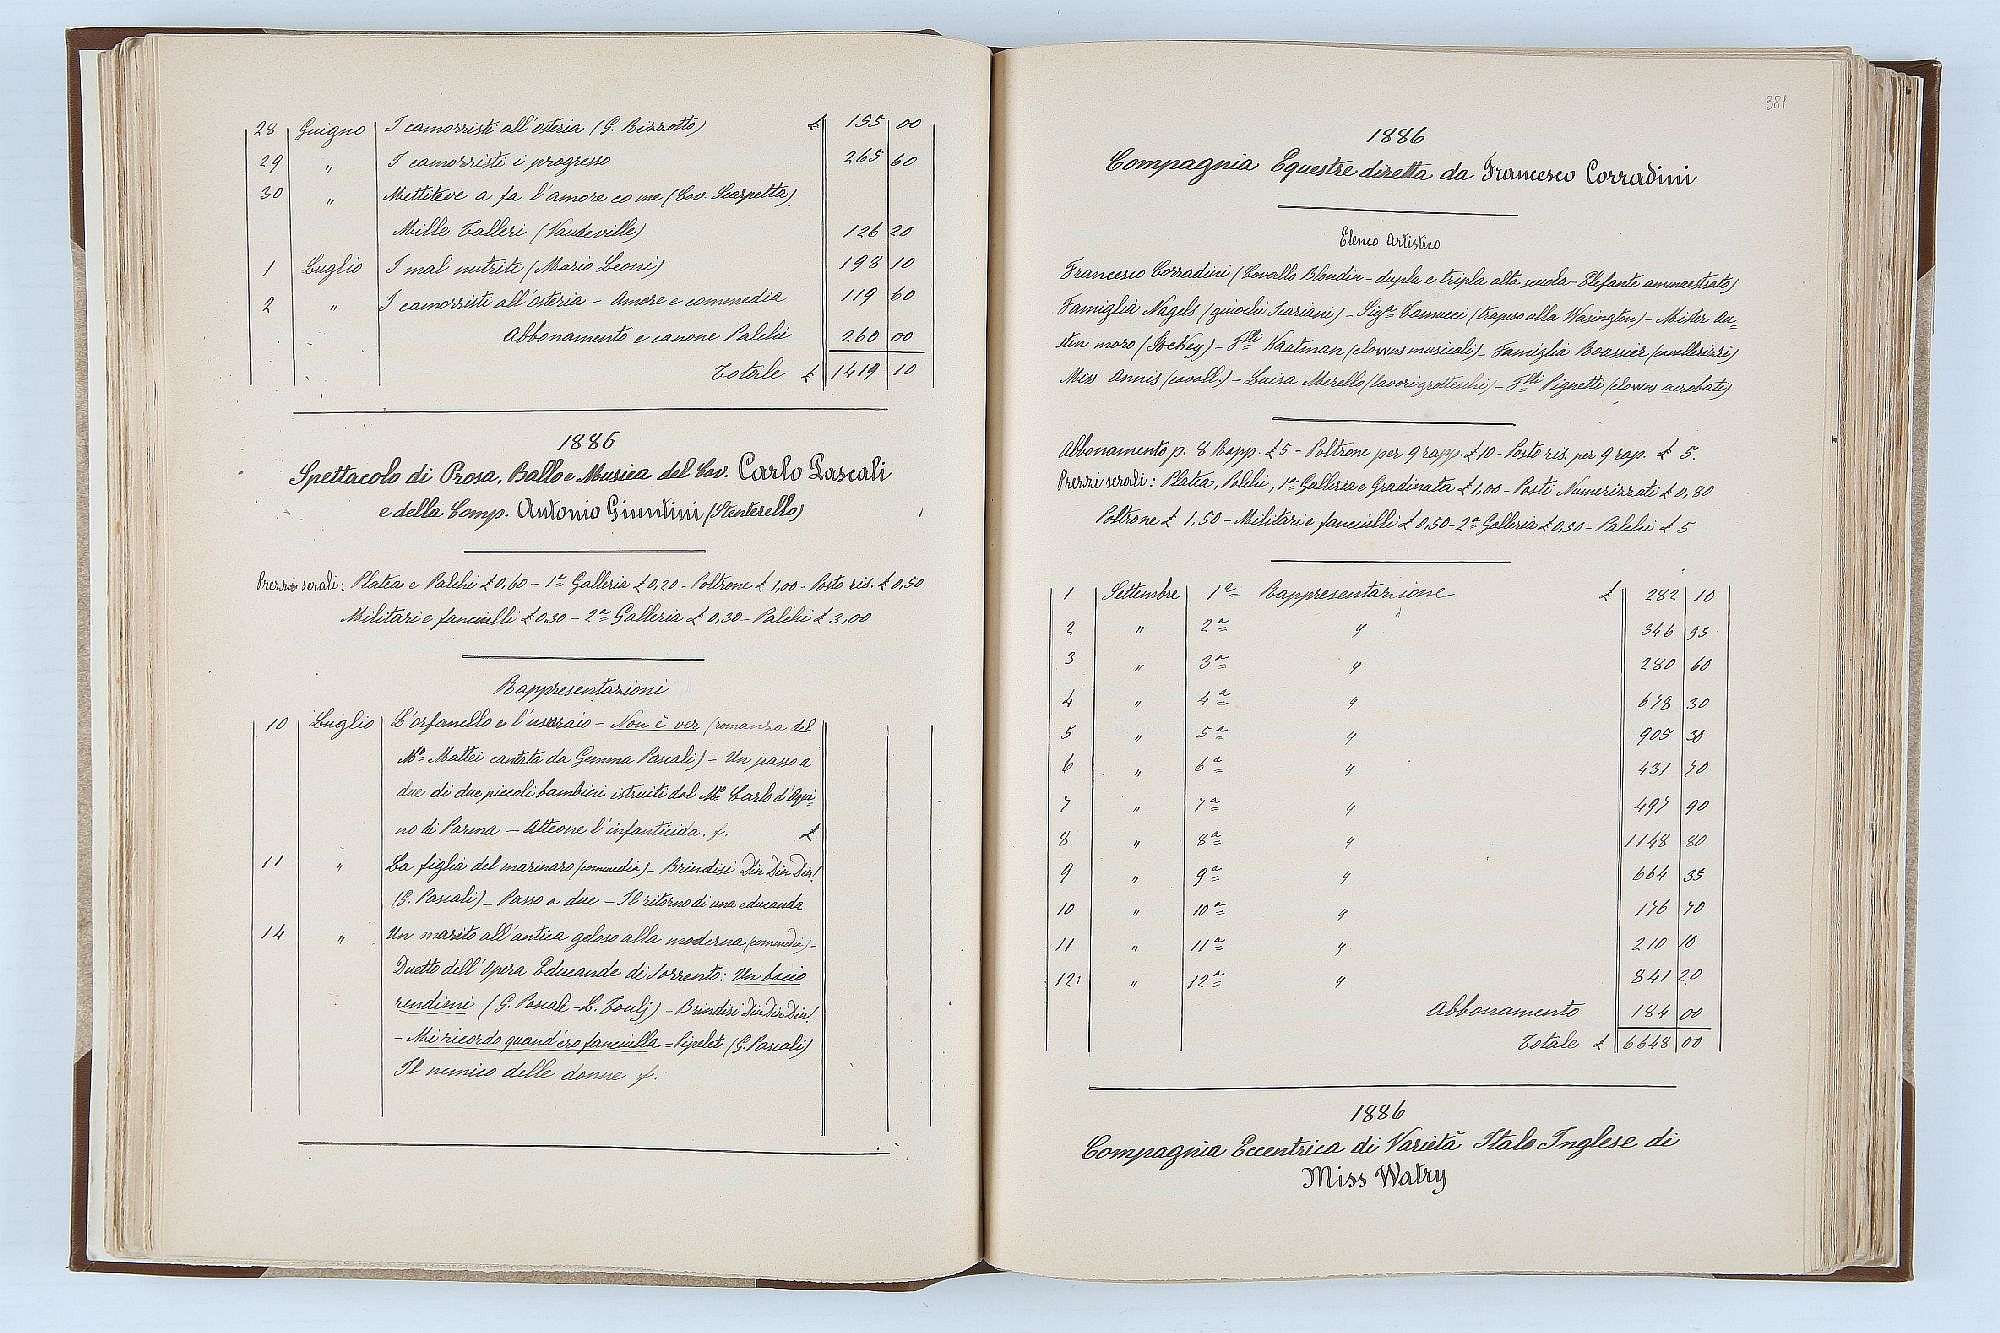 28 Guigno I camorristi all'osteria (G. Rizzotto) £ 155 00
29 " I camorristi i progresso 265 60
30 " Mettiteve a fa l'amore co me (Cav. Scarpetta)
Mille Talleri (Vaudeville) 126 20
1 Luglio I mal nutriti (Mario Leoni) 198 10
2 " I camorristi all'osteria - Amore e commedia 119 60
Abbonamento e canone Palchi 260 00
Totale £ 1419 10
1886
Spettacolo di Prosa, Ballo e Musica del Cav. Carlo Pascali
e della Comp. Antonio Giuntini (Stenterello)
Prezzi serali: Platea e Palchi £ 0,60 - 1ª Galleria £ 0,20 - Poltrone £ 1,00 - Posto ris. £ 0,50
Militari e fanciulli £ 0,30 - 2ª Galleria £ 0,30 - Palchi £ 3,00
Rappresentazioni
10 Luglio L'orfanello e l'usuraio - Non è ver (romanza del
Mº Mattei cantata da Gemma Pascali) - Un passo a
due di due piccoli bambini istruiti dal Mº Carlo d'Aqui-
no di Parma - Atteone l'infanticida. f. £
11 " La figlia del marinaro (commedia) - Brindisi Din Din Din!
(G. Pascali) - Passo a due - Il ritorno di una educanda
14 " Un marito all'antica geloso alla moderna (commedia) -
Duetto dell'Opera Educande di Sorrento: Un bacio
rendimi (G. Pascali - L. Toulj) - Brindisi Din Din Din!
- Mi ricordo quand'ero fanciulla - Pipelet (G. Pascali)
Il nemico delle donne f.
381
1886
Compagnia Equestre diretta da Francesco Corradini
Elenco Artistico
Francesco Corradini (Cavallo Blondin - dupla e tripla alta scuola - Elefante ammaestrato)
Famiglia Nagels (giuochi Icariani) - Sigra Camucci (trapeso alla Wasington) - Mister Au-
stin moro (Jockey) - Flli Waatman (clowns musicali) - Famiglia Boassier (cavallerizzi)
Miss Annis (cavall.) - Luisa Merello (lavori grotteschi) - Flli Pignetti (clowns acrobati)
Abbonamento p. 8 Rapp. £ 5 - Poltrone per 9 rapp. £ 10 - Posto ris. per 9 rap. £ 5.
Prezzi serali: Platea, Palchi, 1ª Galleria e Gradinata £ 1,00 - Posti Numerizzati £ 0,80
Poltrone £ 1,50 - Militari e fanciulli £ 0,50 - 2ª Galleria £ 0,30 - Palchi £ 5
1 Settembre 1ª Rappresentazione £ 282 10
2 " 2ª " 346 95
3 " 3ª " 280 60
4 " 4ª " 678 30
5 " 5ª " 905 30
6 " 6ª " 431 70
7 " 7ª " 497 90
8 " 8ª " 1148 80
9 " 9ª " 664 35
10 " 10ª " 176 70
11 " 11ª " 210 10
12 " 12ª " 841 20
Abbonamento 184 00
Totale £ 6648 00
1886
Compagnia Eccentrica di Varietà Italo Inglese di
Miss Watry